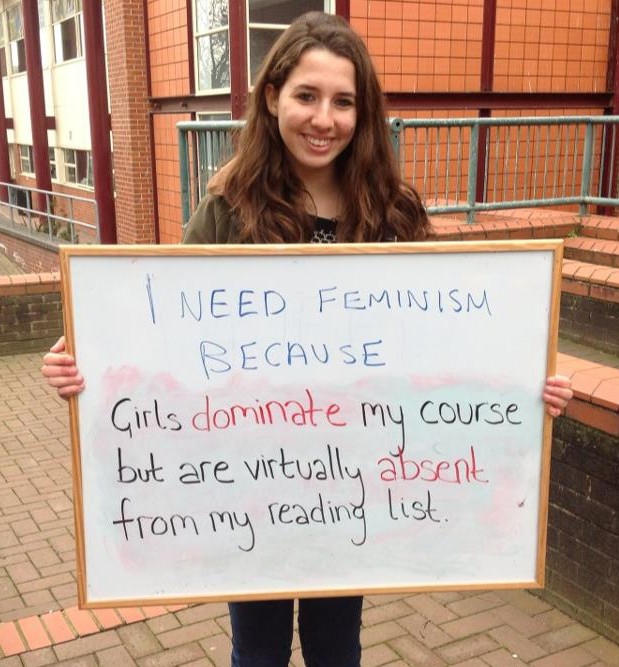 I NEED FEMINISM
BECAUSE
Girls dominate my course
but are virtually absent
from my reading list.